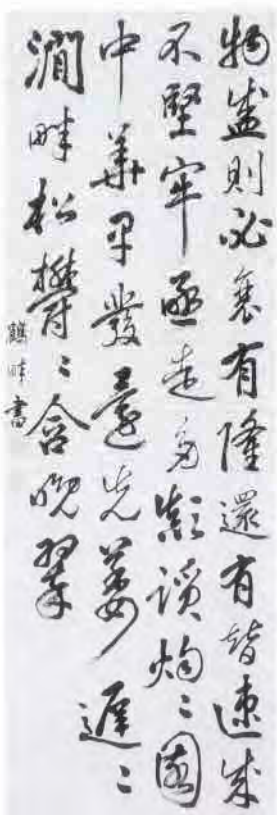 物盛則必衰有隆還有替速成
不堅牢亟走多顛躓灼々園
中華早發還先萎遲々
澗畔松鬱々含晚翠
鶴畔書